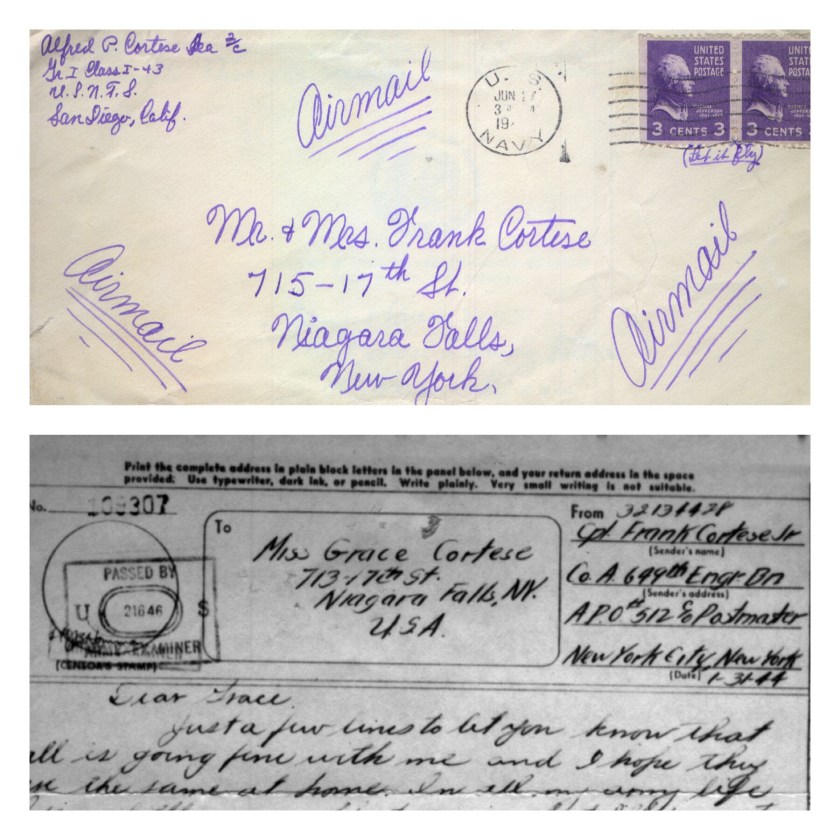 Alfred P. Cortese Sea 2/c
Gr. I Class I-43
U.S.N.T.S.
San Diego, Calif.
Airmail
U. S.
JUN 17
19
NAVY
UNITED STATES POSTAGE
3 CENTS 3
UNIT STAT POSTA
3 CENTS
(Let it fly)
Mr. & Mrs. Frank Cortese
715-17th St.
Niagara Falls,
New York.
Airmail
Airmail
Print the complete address in plain block letters in the panel below, and your return address in the space
provided. Use typewriter, dark ink, or pencil. Write plainly. Very small writing is not suitable.
No. 109307
PASSED BY
U 21646 S
ARMY EXAMINER
(CENSOR'S STAMP)
To
Miss Grace Cortese
713-17th St.
Niagara Falls, N.Y.
U.S.A.
From 32134428
Cpl. Frank Cortese Jr
(Sender's name)
Co. A. 699th Engr. Bn
(Sender's address)
A.P.O # 512 c/o Postmaster
New York City, New York
(Date) 1-31-44
Dear Grace,
Just a few lines to let you know that
all is going fine with me and I hope they
the same at home. In all my army life